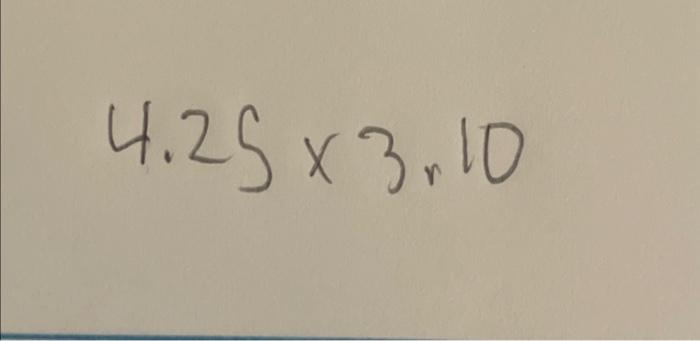 4.25 x 3.10